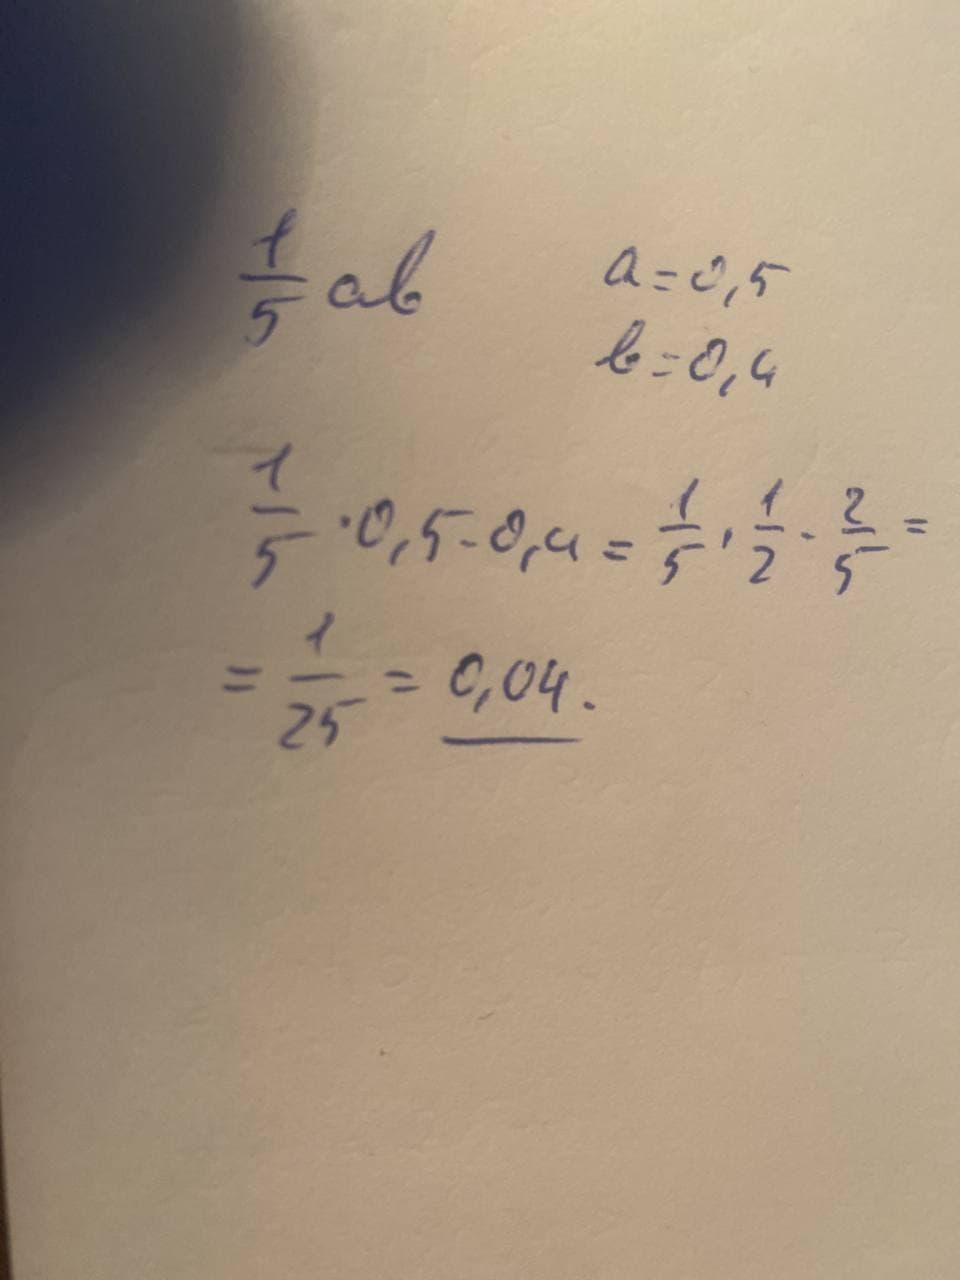 1/5 ab   a = 0,5
b = 0,4
1/5 · 0,5 · 0,4 = 1/5 · 1/2 · 2/5 =
= 1/25 = 0,04.